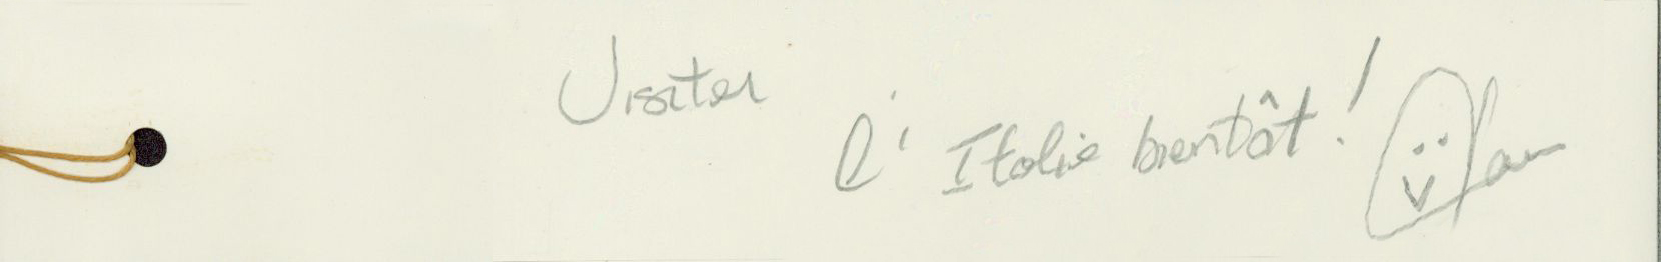 Visiter
l'Italie bientôt !